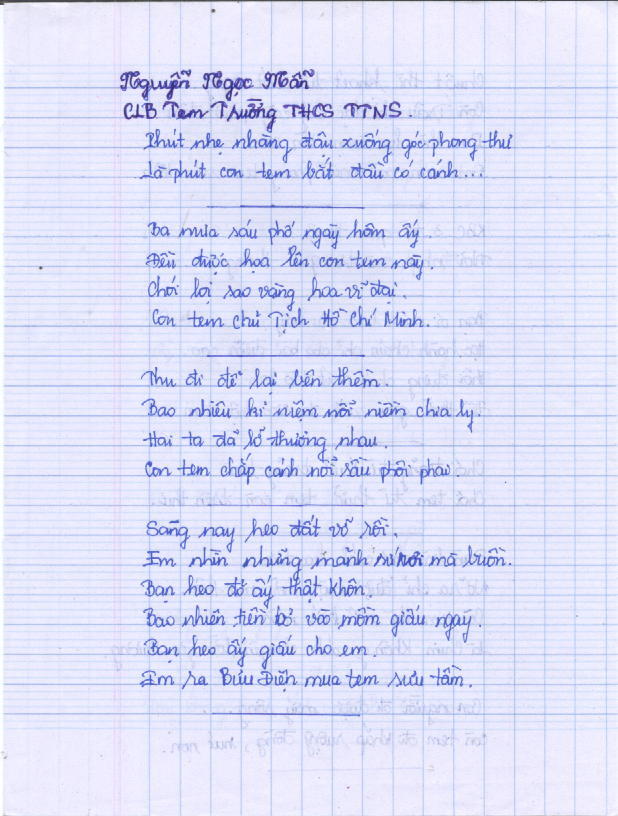 Nguyễn Ngọc Mẫn
CLB Tem Trường THCS TTNS.
Phút nhẹ nhàng dấu xuống góc phong thư
Là phút con tem bắt đầu có cánh...
Ba nưa sáu phố ngày hôm ấy.
Đều được họa lên con tem này.
Chói lọi sao vàng hoa vĩ đại.
Con tem chủ Tịch Hồ Chí Minh.
Thu đi để lại bên thềm.
Bao nhiêu kỉ niệm nỗi niềm chia ly.
Hai ta đã lỡ thương nhau.
Con tem chắp cánh nỗi sầu phôi phai.
Sáng nay heo đất vỡ rồi.
Em nhìn những mảnh sứ rơi mà buồn.
Bạn heo đỏ ấy thật khôn.
Bao nhiên tiền bỏ vào mồm giấu ngay.
Bạn heo ấy giấu cho em.
Em ra Bưu Điện mua tem sưu tầm.